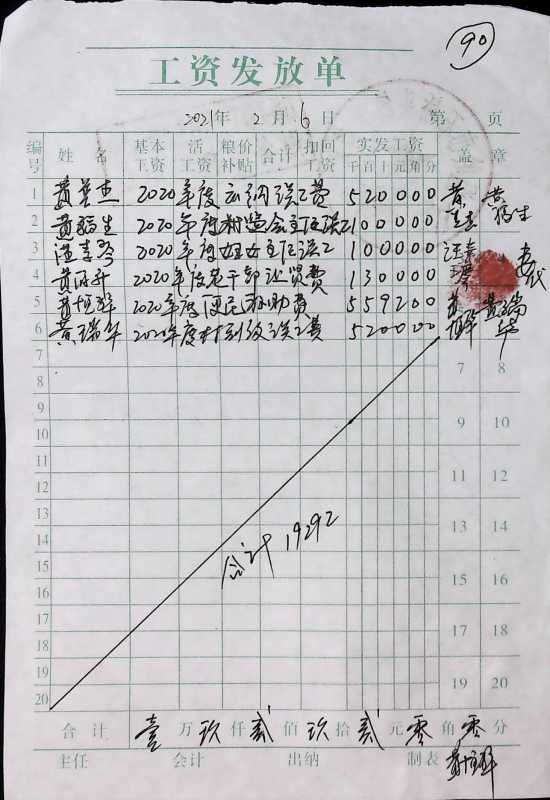 90
工资发放单
2021年 2月 6日 第 页
编号 姓名 基本工资 活工资 粮价补贴 合计 扣回工资 实发工资 千百十元角分 盖章
1 黄 杰 2020年度 误工费 520000
2 黄 生 2020年度 主任误工 100000
3 汪 琴 2020年度妇女主任误工 100000
4 黄 升 2020年度老干部 费 130000
5 黄恒 2020年度便民 费 559200
6 黄瑞华 2020年度村 误工费 520000
7 7 8
8
9 9 10
10
11 11 12
12
13 13 14
14
15 15 16
16
17 17 18
18
19 19 20
20
合计 19292
合计 壹万玖仟贰佰玖拾贰元零角零分
主任 会计 出纳 制表